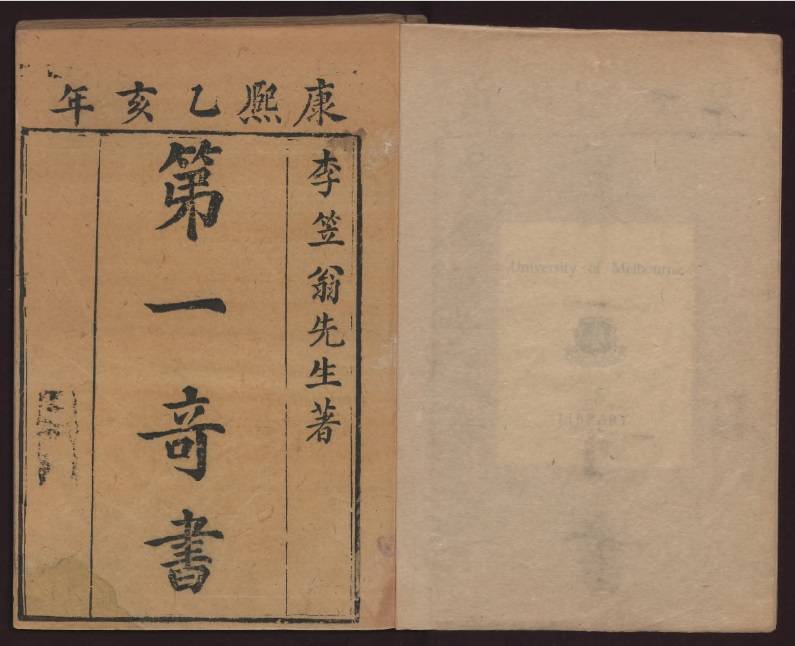 康熙乙亥年
李笠翁先生著
第一竒書
University of Melbourne
LIBRARY